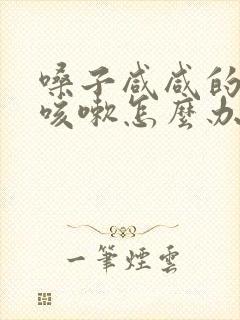 嗓子咸咸的
咳嗽怎麼办
一筆煙雲